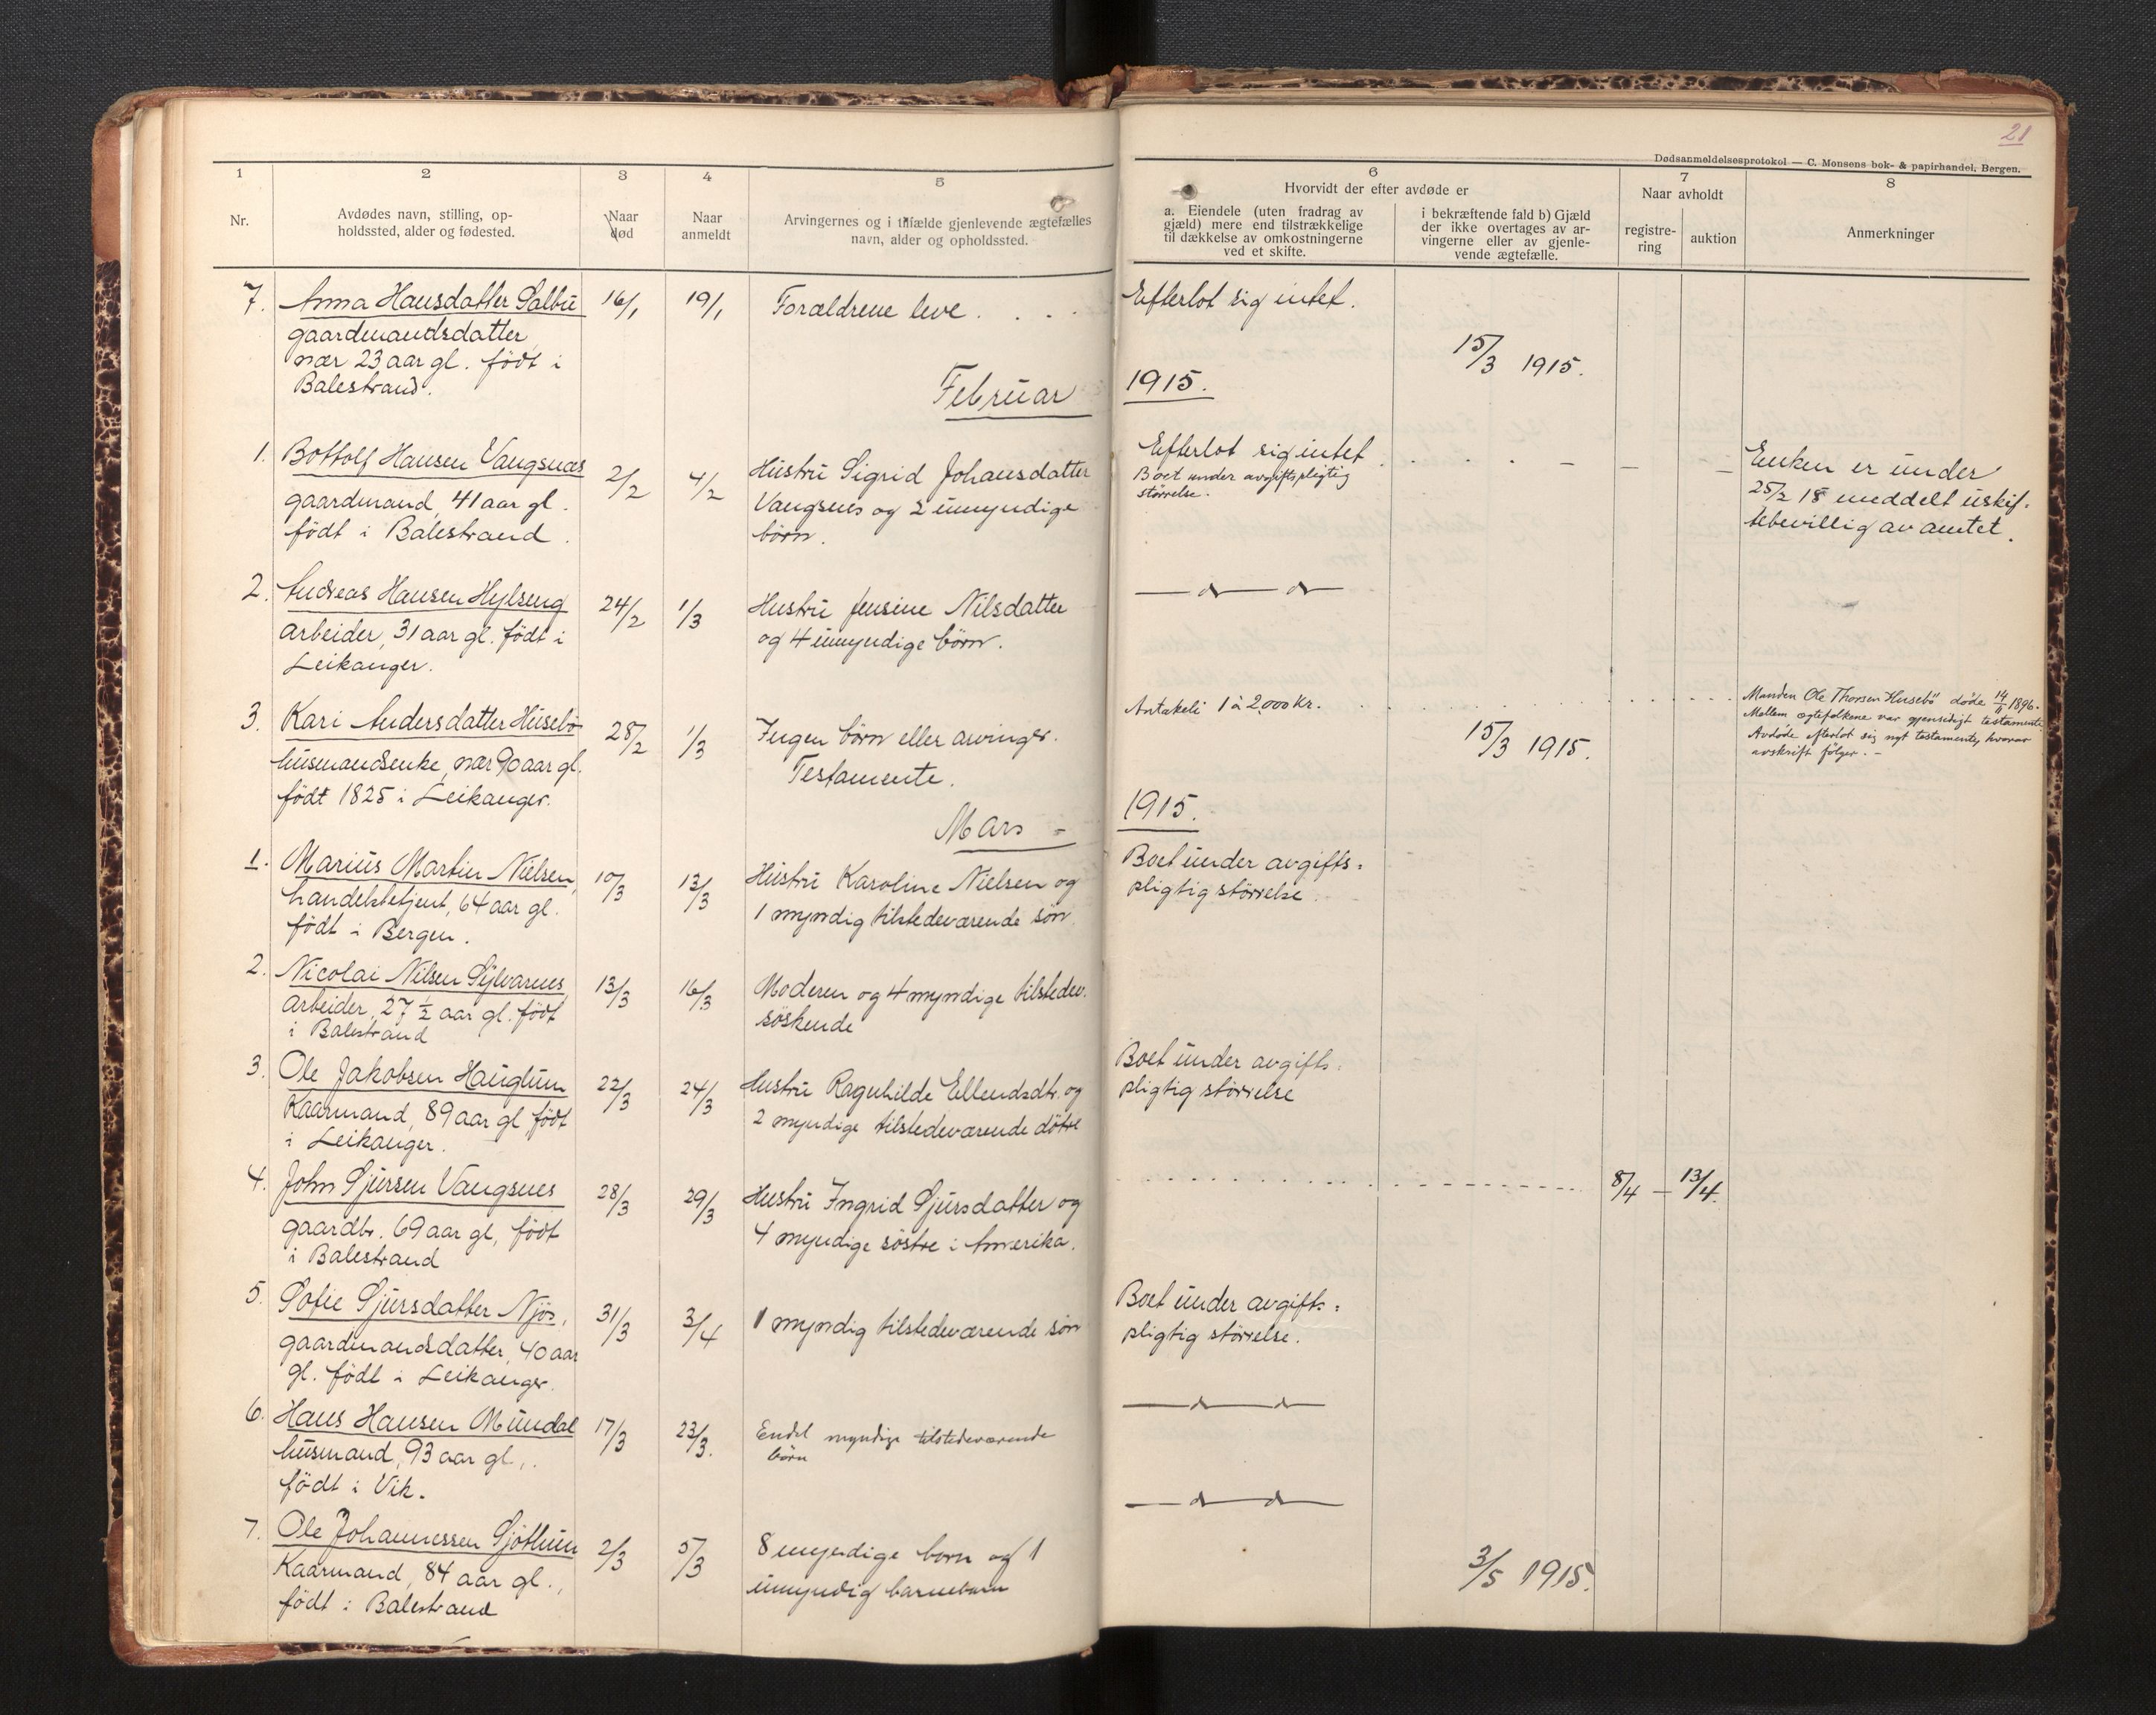 21
Dødsanmeldelsesprotokol — C. Monsens bok- & papirhandel, Bergen.
1
2
3
4
5
6
7
8
Nr.
Avdødes navn, stilling, op-
holdssted, alder og fødested.
Naar
død
Naar
anmeldt
Arvingernes og i tilfælde gjenlevende ægtefælles
navn, alder og opholdssted.
Hvorvidt der efter avdøde er
a. Eiendele (uten fradrag av
gjæld) mere end tilstrækkelige
til dækkelse av omkostningerne
ved et skifte.
i bekræftende fald b) Gjæld
der ikke overtages av ar-
vingerne eller av gjenle-
vende ægtefælle.
Naar avholdt
registre-
ring
auktion
Anmerkninger
7. Anna Hansdatter Salbu 16/1 19/1 Forældrene leve. . . . Efterlot sig intet.
gaardmandsdatter
nær 23 aar gl. født i
Balestrand.
15/3 1915.
Februar 1915.
1. Bottolf Hansen Vangsnæs 2/2 4/2 Hustru Sigrid Johansdatter Efterlot sig intet . . . . — — — Enken er under
gaardmand, 41 aar gl. Vangsnes og 2 umyndige Boet under avgiftspligtig 25/2 15 meddelt uskif-
født i Balestrand. børn. størrelse. tebevillig av amtet.
2. Andreas Hansen Hylseng 24/2 1/3 Hustru Jensine Nilsdatter — d — d —
arbeider, 31 aar gl. født i og 4 umyndige børn.
Leikanger.
3. Kari Andersdatter Husebø 28/2 1/3 Ingen børn eller arvinger. Antakeli 1 à 2,000 Kr. Manden Ole Thorsen Husebö døde 14/11 1896.
husmandsenke, nær 90 aar gl. Testamente. Mellem ægtefolkene var gjensidigt testamente.
født 1825 i Leikanger. Avdøde efterlot sig nyt testamente, hvorav
avskrift følger. -
15/3 1915.
Mars - 1915.
1. Marius Martin Nielsen, 10/3 13/3 Hustru Karoline Nielsen og Boet under avgifts-
handelsbetjent, 64 aar gl. 1 myndig tilstedeværende søn pligtig størrelse.
født i Bergen.
2. Nicolai Nilsen Sylvarnes 13/3 16/3 Moderen og 4 myndige tilstedev.
arbeider, 27 ½ aar gl. født søskende
i Balestrand
3. Ole Jakobsen Hauglum 22/3 24/3 Hustru Ragnhilde Ellendsdtr. og Boet under avgifts-
Kaarmand, 89 aar gl født 2 myndige tilstedeværende døtre pligtig størrelse
i Leikanger.
4. John Sjursen Vangsnes 28/3 29/3 Hustru Ingrid Sjursdatter og 8/4 — 13/4.
gaardbr. 69 aar gl, født 4 myndige søstre i Amerika.
i Balestrand
5. Sofie Sjursdatter Njøs, 31/3 3/4 1 myndig tilstedeværende søn Boet under avgifts-
gaardmandsdatter, 40 aar pligtig størrelse.
gl. født i Leikanger.
6. Hans Hansen Mundal 17/3 23/3. Endel myndige tilstedeværende — d — d —
husmand, 93 aar gl., børn
født i Vik.
7. Ole Johannessen Sjøthun 2/3 5/3 8 myndige born og 1 — d — d —
Kaarmand, 84 aar gl., umyndig barnebarn
født i Balestrand
3/5 1915.